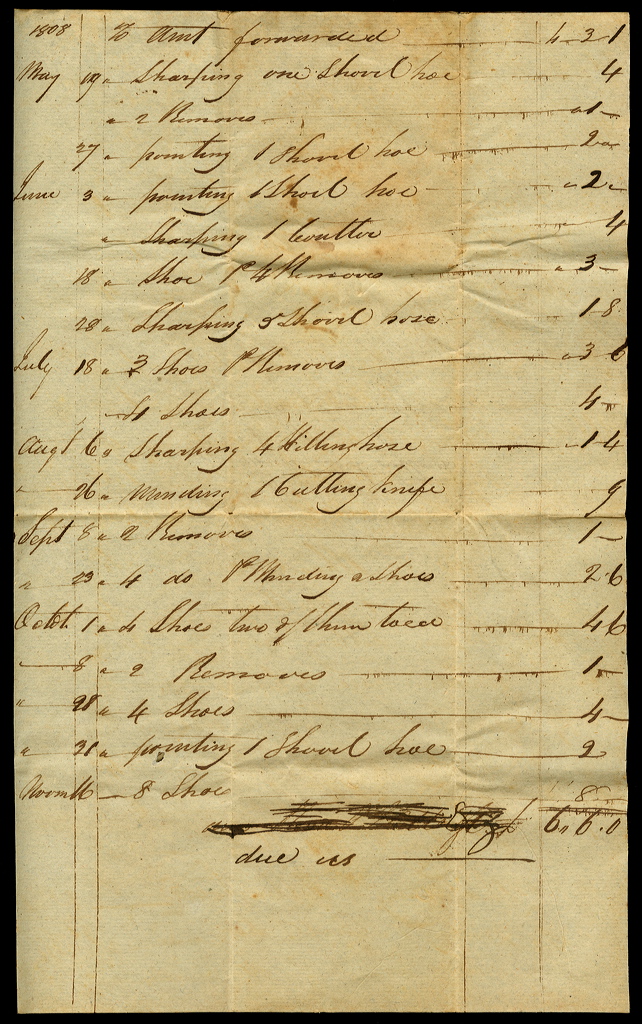 1808 To Amt forwarded 4 3 1
May 19 " Sharping one Shovil hoe 4
" 2 Removes " 1 -
27 " pointing 1 Shovil hoe 2 "
June 3 " pointing 1 Shovil hoe " 2 "
" Sharping 1 Coulter 4
18 " Shoe & 4 Removes " 3 -
28 " Sharping 5 Shovil hose 1 8
July 18 " 3 Shoes & Removes " 3 6
4 Shoes 4 -
Augt 6 " Sharping 4 Hilling hose " 1 4
" 26 " Minding 1 Cutting knife 9
Sept 8 " 2 Removes 1 -
" 23 " 4 do & Minding a Shoes 2 6
Octob 1 " 4 Shoes two of them toed 4 6
8 " 2 Removes 1 -
" 28 " 4 Shoes 4 -
" 31 " pointing 1 Shovil hoe 2
Novm 16 - 8 Shoes 8
6 " 6 . 0
due us